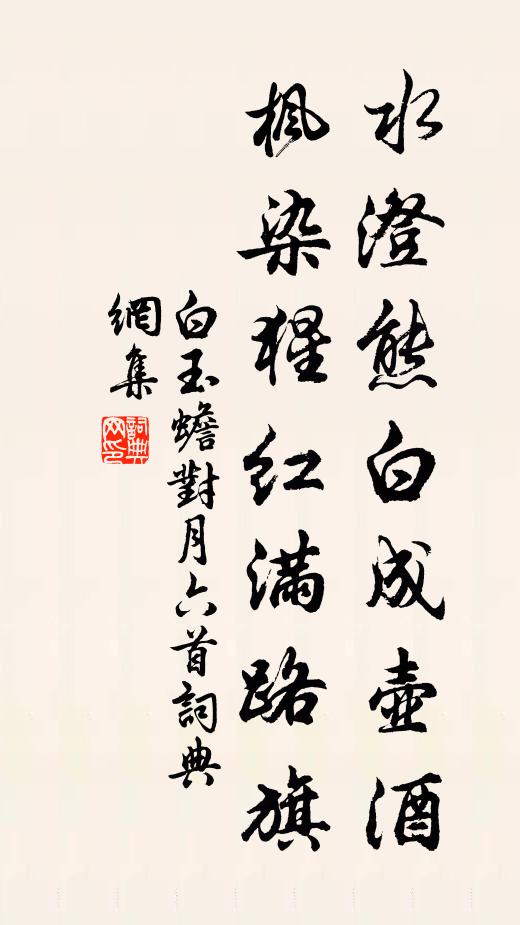 水澄熊白成壺酒
枫染猩红满路旗
白玉蟾對月六首詞典
網集
詞典网印